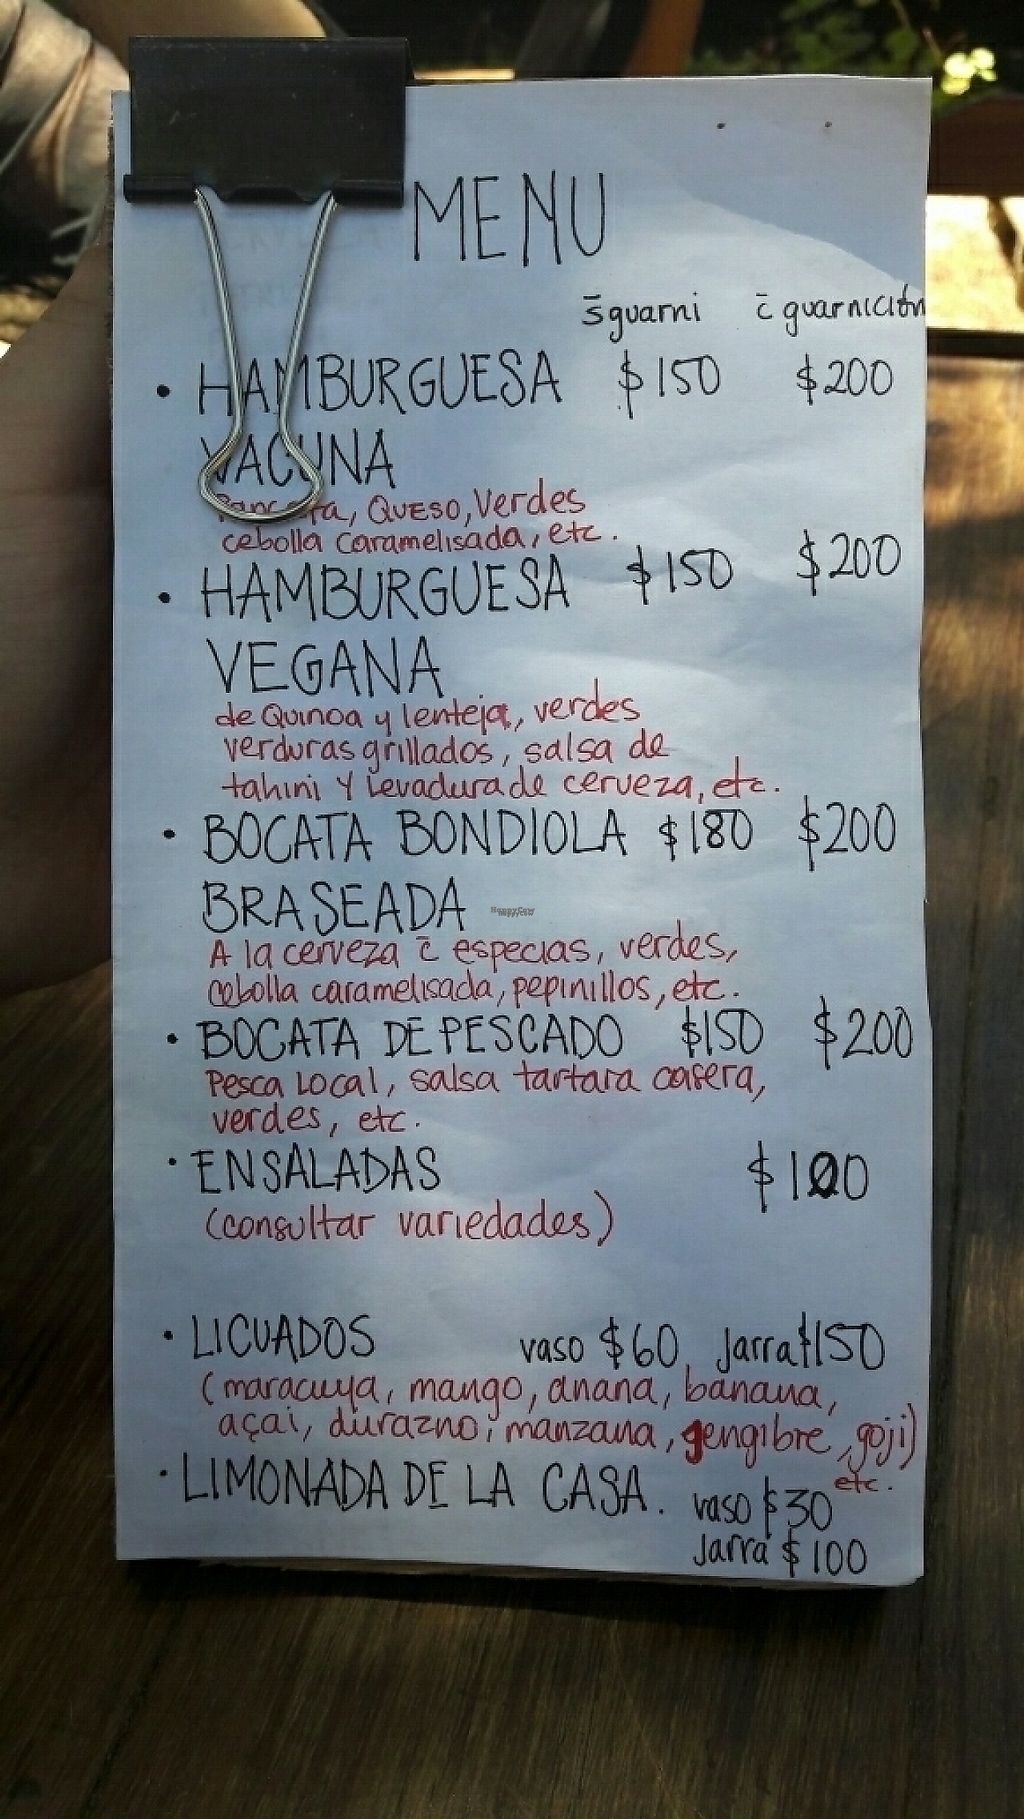 MENU
s̄ guarni c̄ guarnición
• HAMBURGUESA $150 $200
VACUNA
Panceta, QUESO, Verdes
cebolla caramelisada, etc.
• HAMBURGUESA $150 $200
VEGANA
de Quinoa y lenteja, verdes
verduras grillados, salsa de
tahini y Levadura de cerveza, etc.
• BOCATA BONDIOLA $180 $200
BRASEADA
A la cerveza c̄ especias, verdes,
cebolla caramelisada, pepinillos, etc.
• BOCATA DE PESCADO $150 $200
Pesca Local, salsa tartara casera,
verdes, etc.
• ENSALADAS $100
(consultar variedades)
• LICUADOS vaso $60 Jarra $150
(maracuya, mango, anana, banana,
açai, durazno, manzana, gengibre, goji)
etc.
• LIMONADA DE LA CASA. vaso $30
Jarra $100
HappyCow